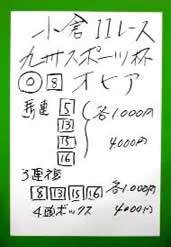 小倉11レース
九州スポーツ杯
◎ 8 オヒア
馬連 5 各1,000円
13
15 4000円
16
3連複
8 13 15 16 各1,000円
4頭ボックス 4000円